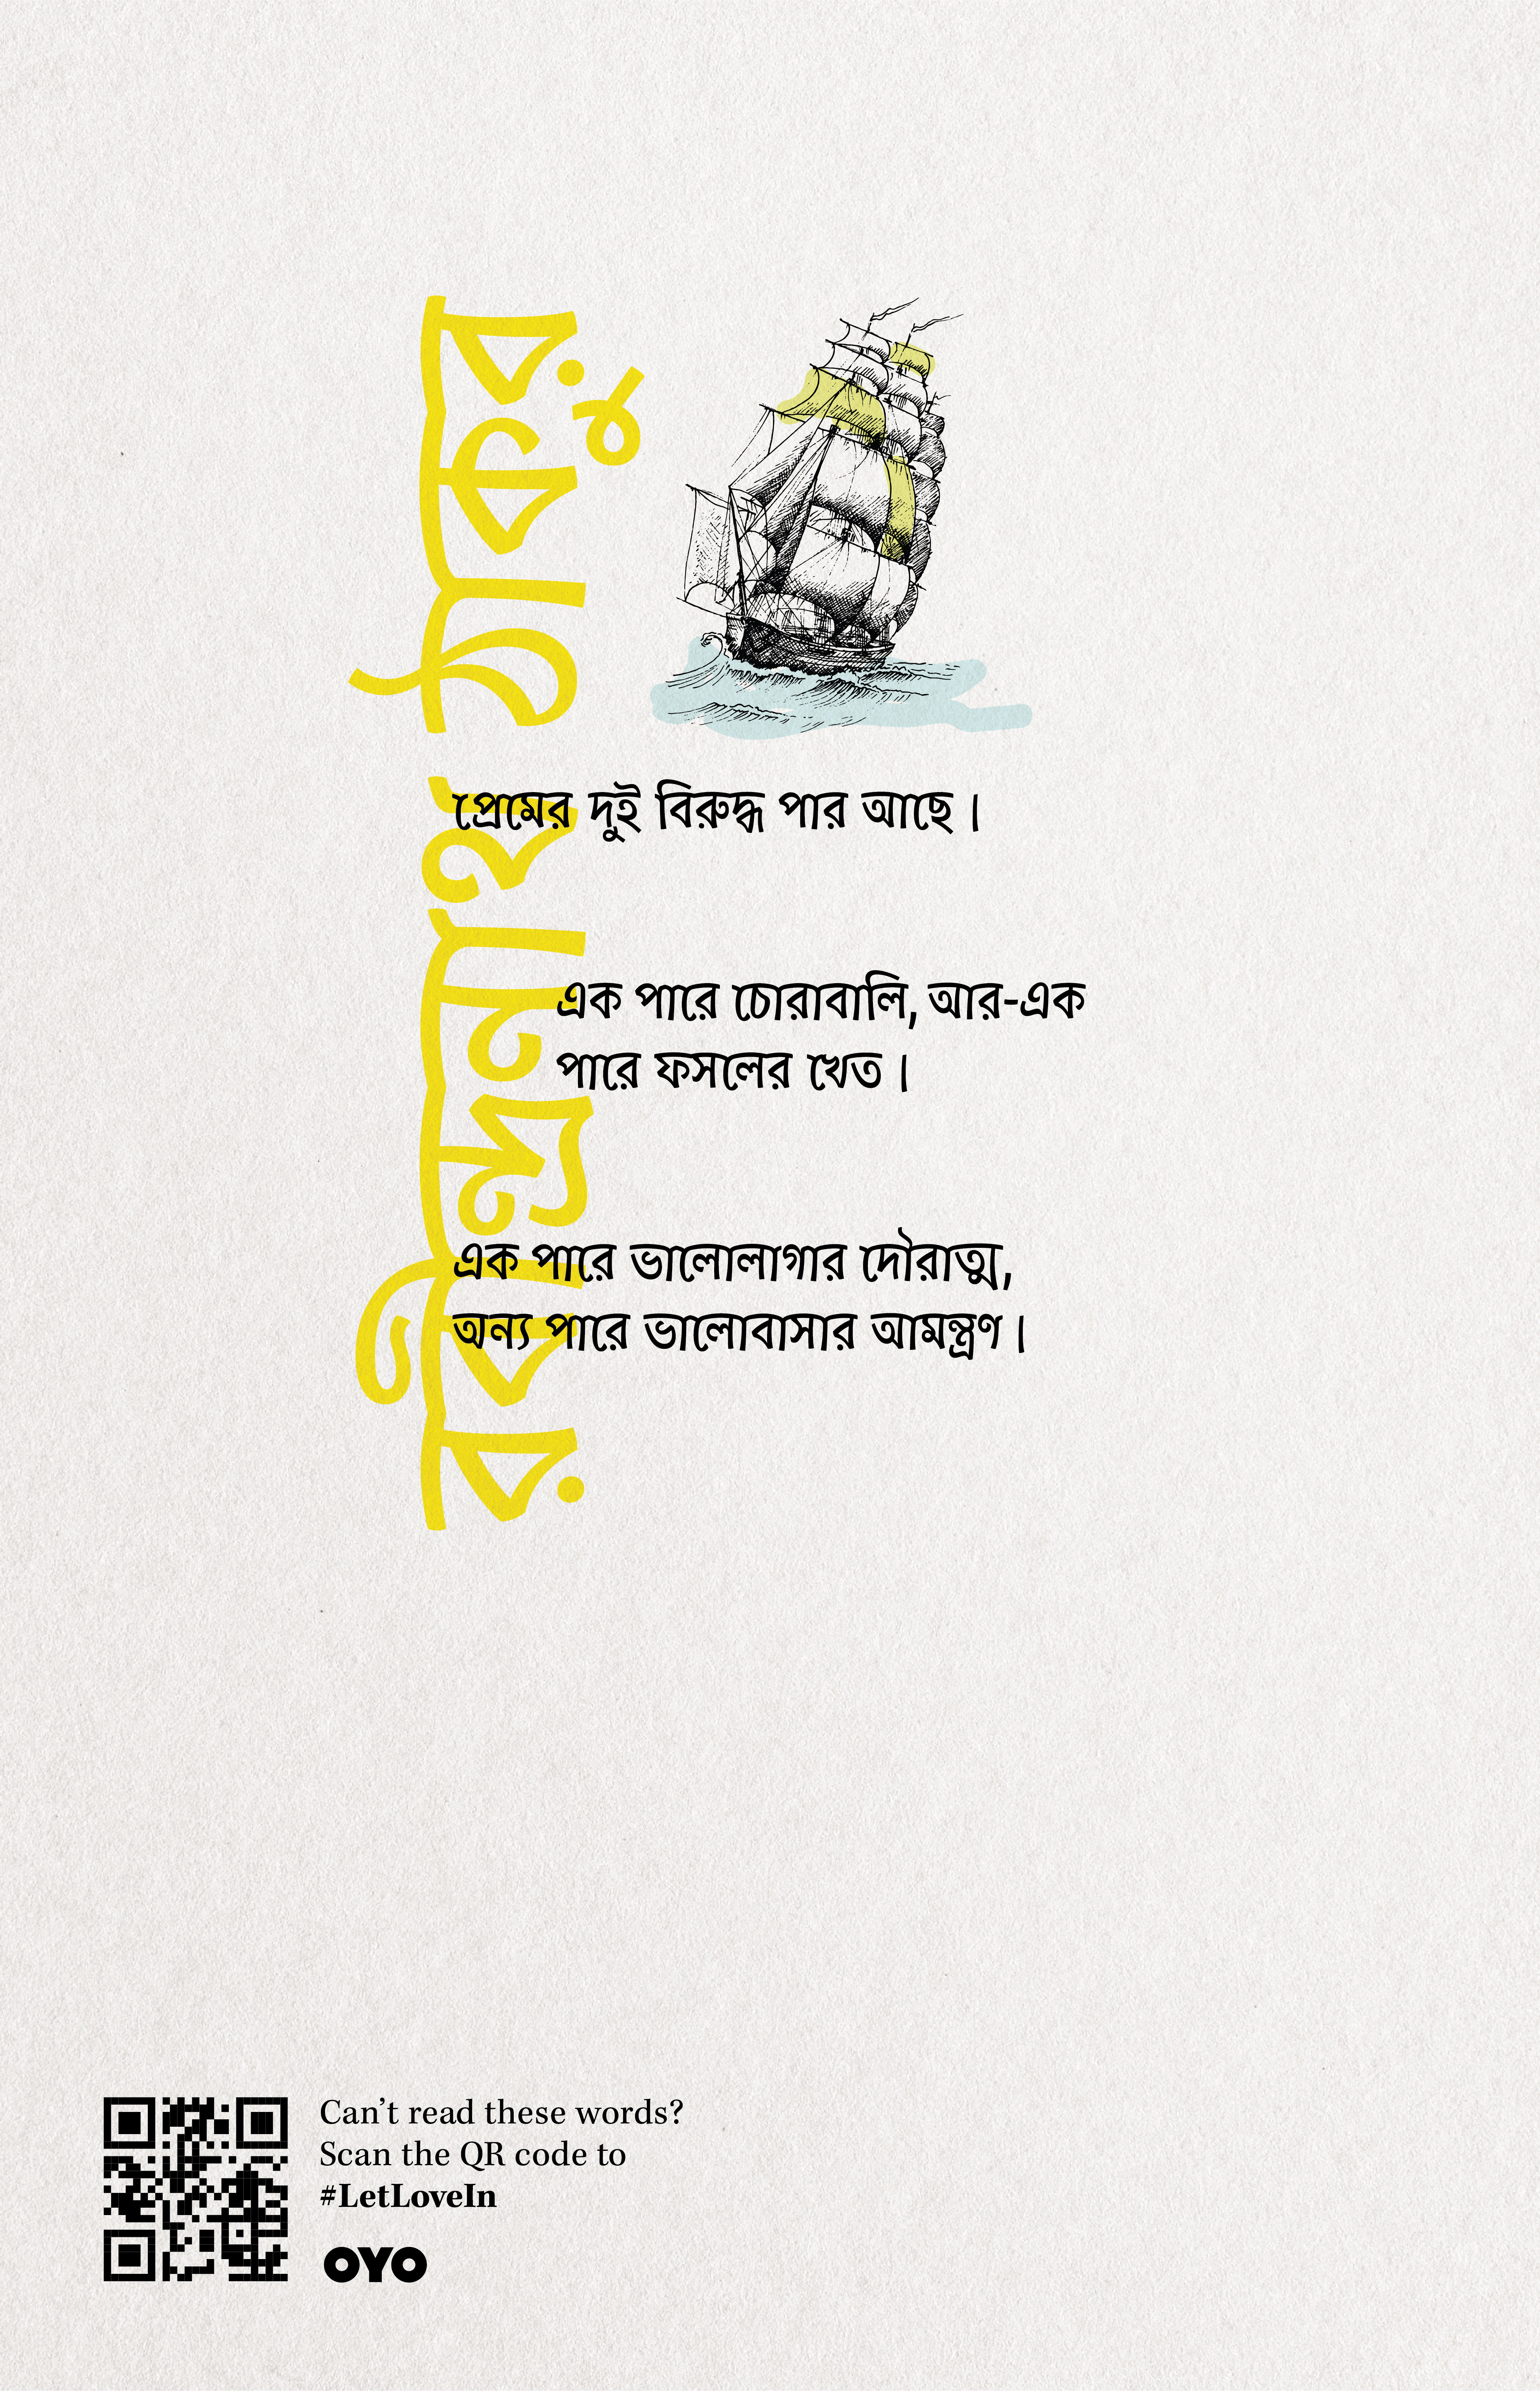 রবীন্দ্রনাথ ঠাকুর
প্রেমের দুই বিরুদ্ধ পার আছে।
এক পারে চোরাবালি, আর-এক
পারে ফসলের খেত।
এক পারে ভালোলাগার দৌরাত্ম,
অন্য পারে ভালোবাসার আমন্ত্রণ।
Can’t read these words?
Scan the QR code to
#LetLoveIn
OYO